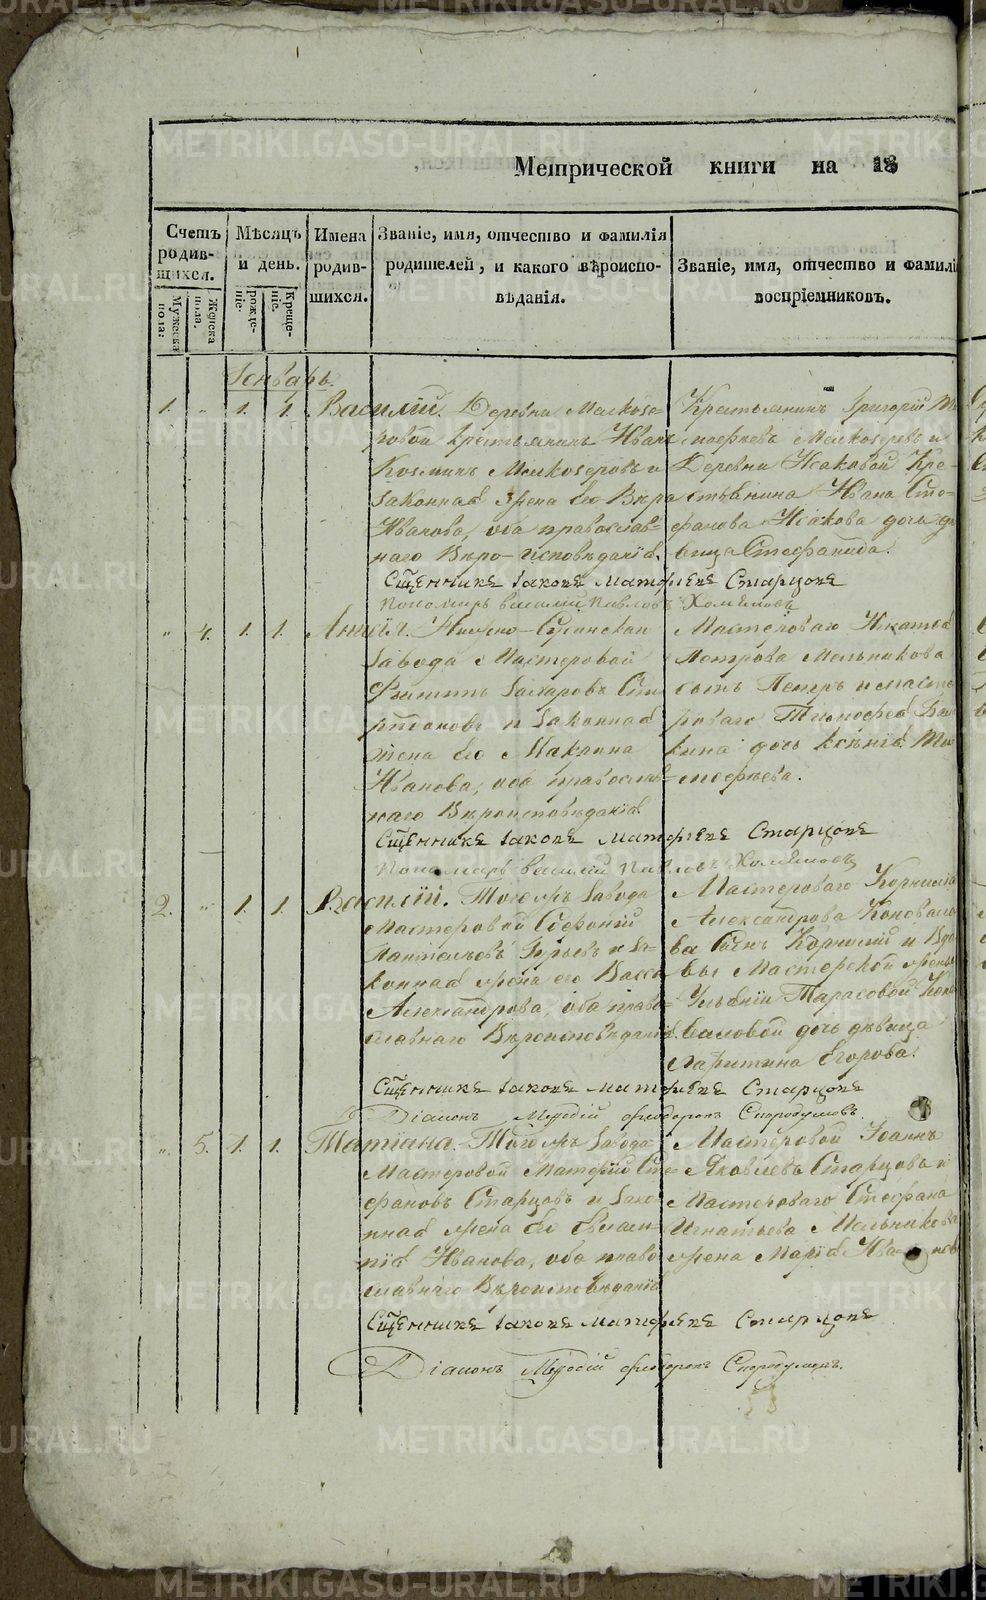 Метрической книги на 18
Счетъ родив-шихся.
Мужеска пола:
Женска пола.
Мѣсяцъ и день.
Рожде-ніе.
Креще-ніе.
Имена родив-шихся.
Званіе, имя, отчество и фамилія родителей, и какого вѣроиспо-вѣданія.
Званіе, имя, отчество и фамилі
воспріемниковъ.
Генварь.
1. " 1. 1. Василій. Деревни Мелкозе-
ровой крестьянинъ Иванъ
Козминъ Мелкозеровъ и
законная жена его Вѣра
Иванова, оба православ-
наго Вѣро-исповѣданія.
Крестьянинъ Григорій Ти-
мофѣевъ Мелкозеровъ и
Деревни Исаковой Кре-
стьянина Ивана Сте-
фанова Исакова дочь дѣ-
вица Стефанида.
Сщенникъ Іаковъ Матфѣевъ Старцовъ
Пономарь Василій Павловъ Хомяковъ
" 4. 1. 1. Нижно-
завода Мастеровой
Филиппъ Захаровъ
и законная
жена его Макрина
Иванова, оба православ-
наго Вѣроисповѣданія
Мастероваго Игнатія
Петрова Мельникова
сынъ Петръ и масте-
роваго Тимофея
кина дочь Ксенія Ти-
мофѣева.
Сщенникъ Іаковъ Матфѣевъ Старцовъ
Пономарь Василій Павловъ Хомяковъ
2. " 1. 1. Василій. Тогожъ завода
мастеровой
и за-
конная жена его Васса
Александрова, оба право-
славнаго Вѣроисповѣданія.
Мастероваго Корнилія
Александрова Коновало-
ва сынъ Корнилій и вдо-
вы Мастерской жены
Тарасовой Коно-
валовой дочь дѣвица
Харитина Егорова.
Сщенникъ Іаковъ Матфѣевъ Старцовъ
Діаконъ Меѳодій Ѳеодоровъ Скородумовъ
" 5. 1. 1. Татіана. Тогожъ завода
Мастеровой Матфій Сте-
фановъ Старцовъ и зако-
нная жена его Евгѣн-
ія Иванова, оба право-
славнаго Вѣроисповѣданія
Мастеровой Іоаннъ
Яковлевъ Старцовъ и
Мастероваго Стефана
Игнатьева Мельникова
жена Марія Иванова
Сщенникъ Іаковъ Матфѣевъ Старцовъ
Діаконъ Меѳодій Ѳеодоровъ Скородумовъ.
METRIKI.GASO-URAL.RU